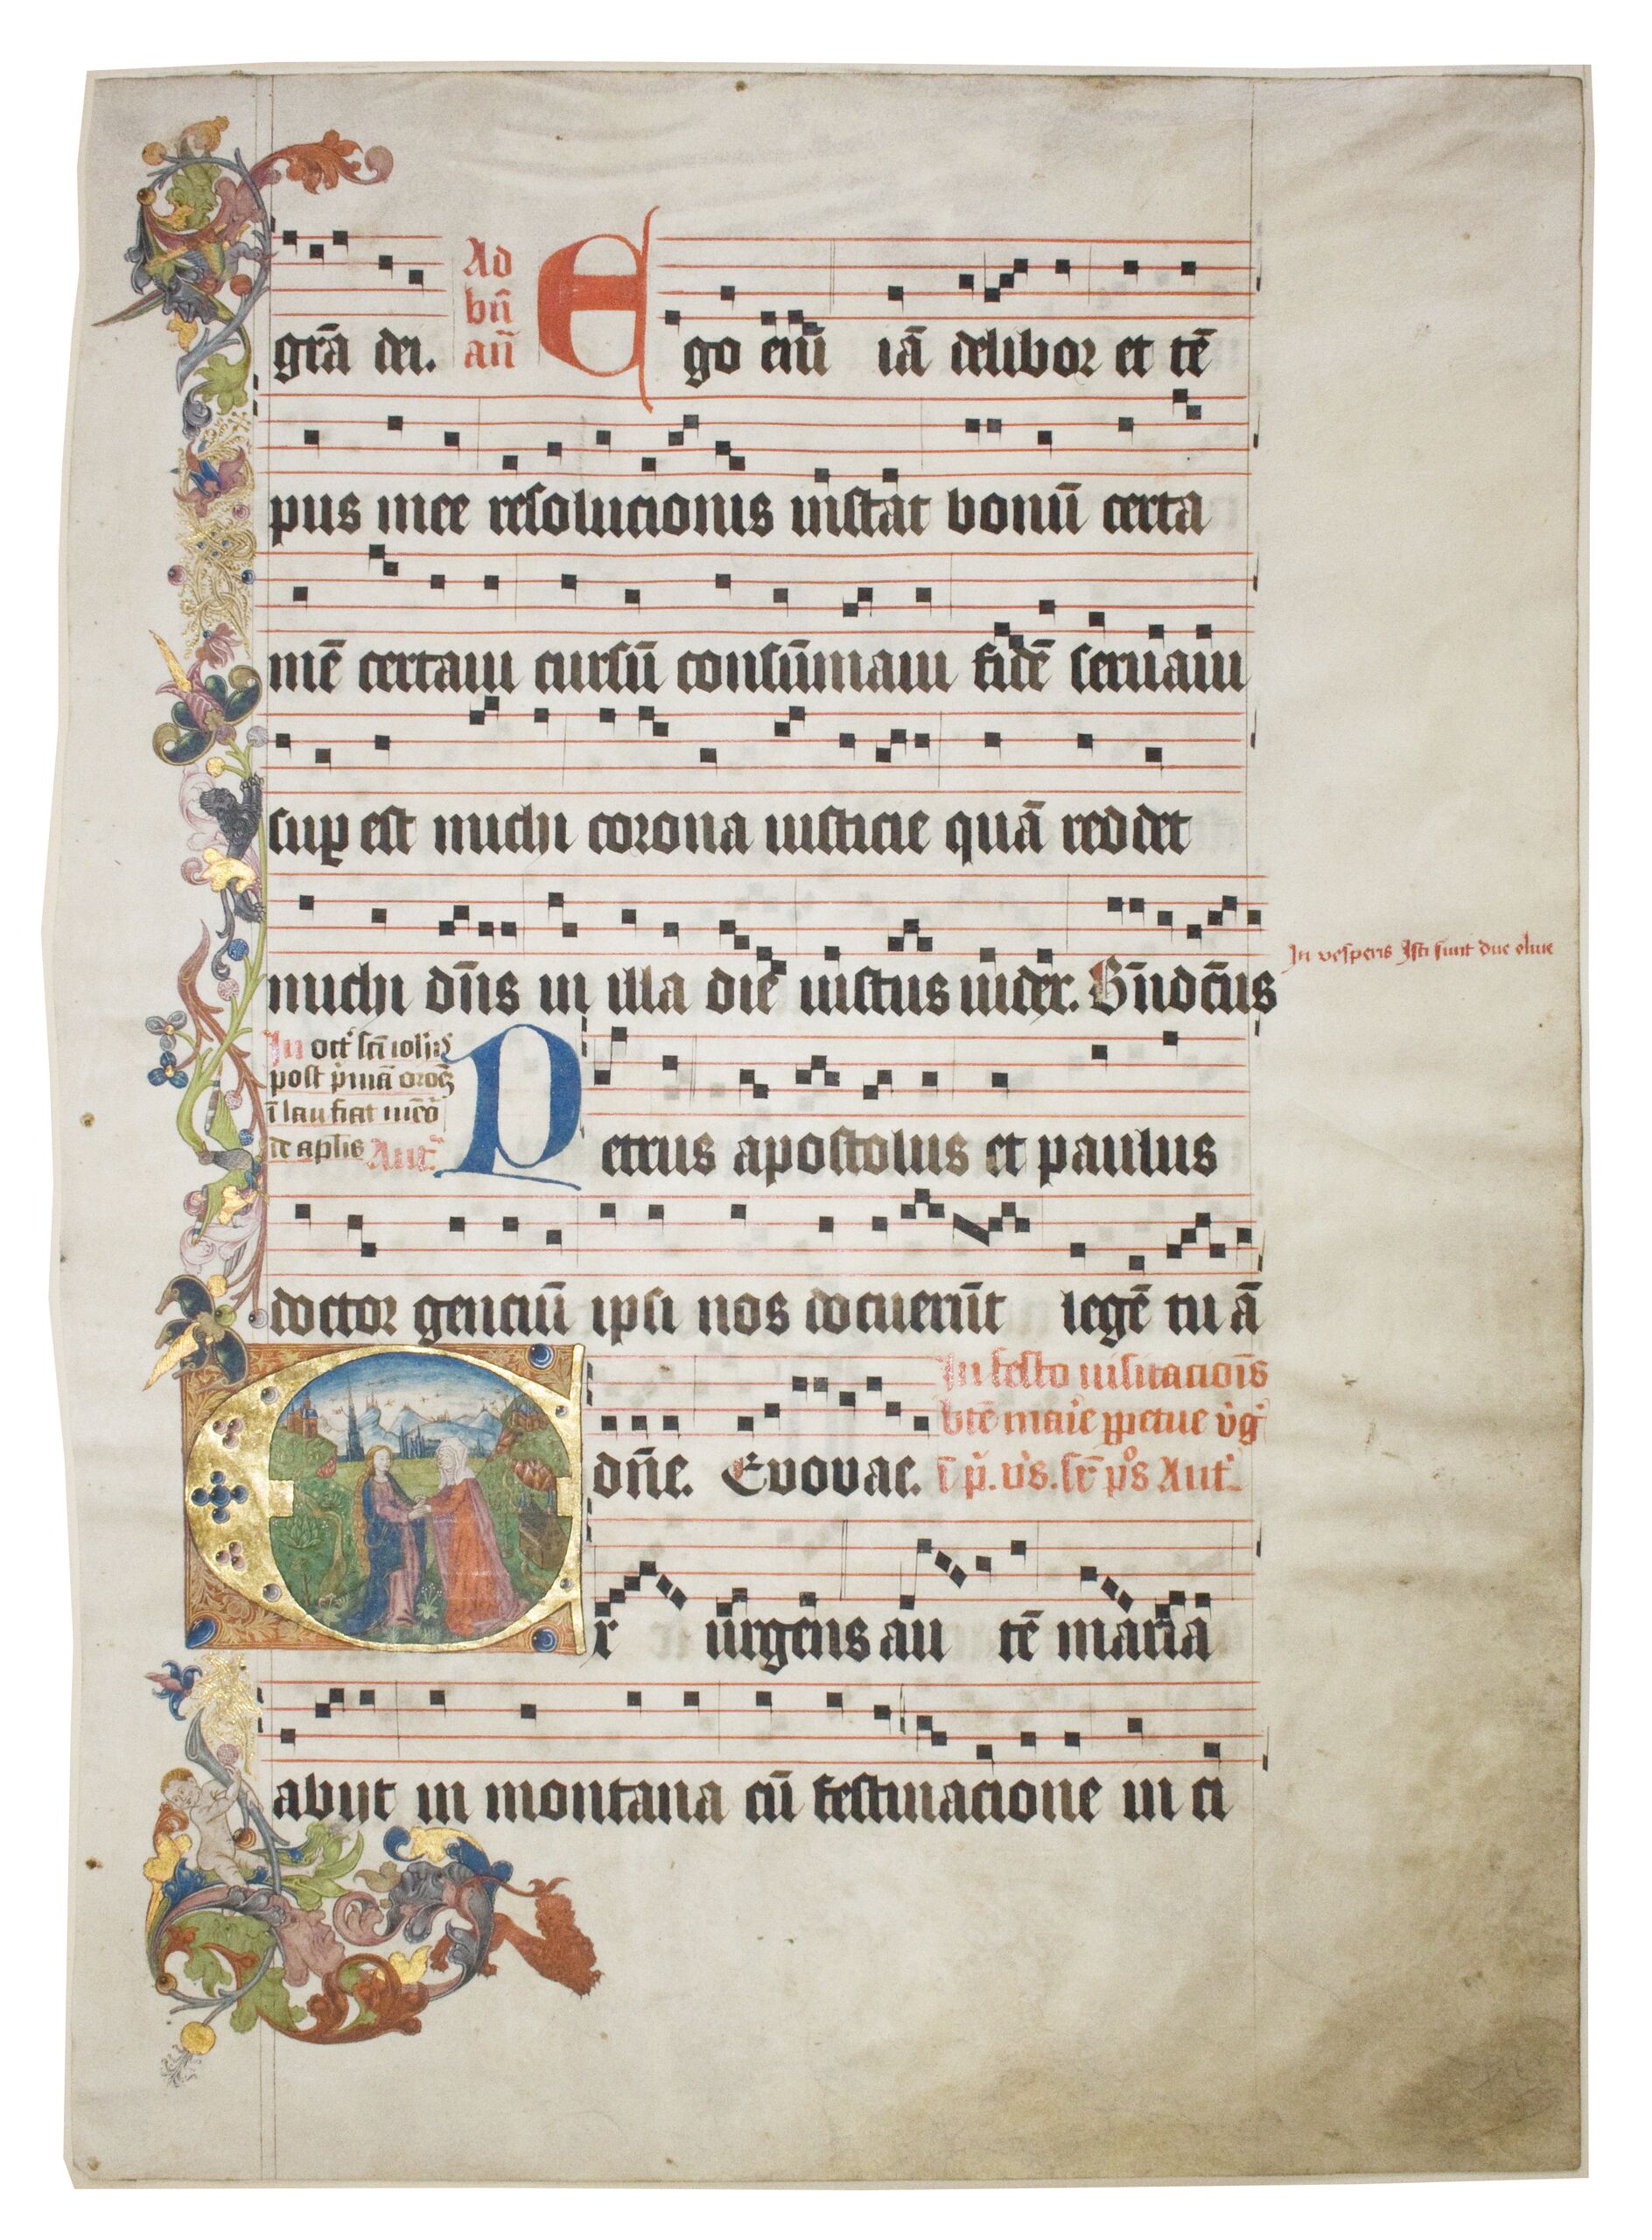 grā dei. Ad
bn̄
an̄ Ego eni̅ iā delibor et tē
pus mee resolucionis instat bonū certa
mē certaui cursū consūmaui fidē seruaui
suꝑ est michi corona iusticie quā reddet
michi dn̄s in illa die iustus iudex. Bn̄dc̄us
In vesperis Isti sunt due oliue
In oct' sc̄i ioh̄is
post p̍mā oroē
ī lau fiat mēō
de aplīs Ant.
Petrus apostolus et paulus
doctor genciū ipsi nos docuerūt legē tuā
dn̄e. Evovae. In festo uisitaciōis
bt̄e marīe ꝑpetue v̍g̍
ī p̍. v̍s. sr̄ pᵒs Ant.
Exurgens autē maria
abijt in montana cū festinacione in ci